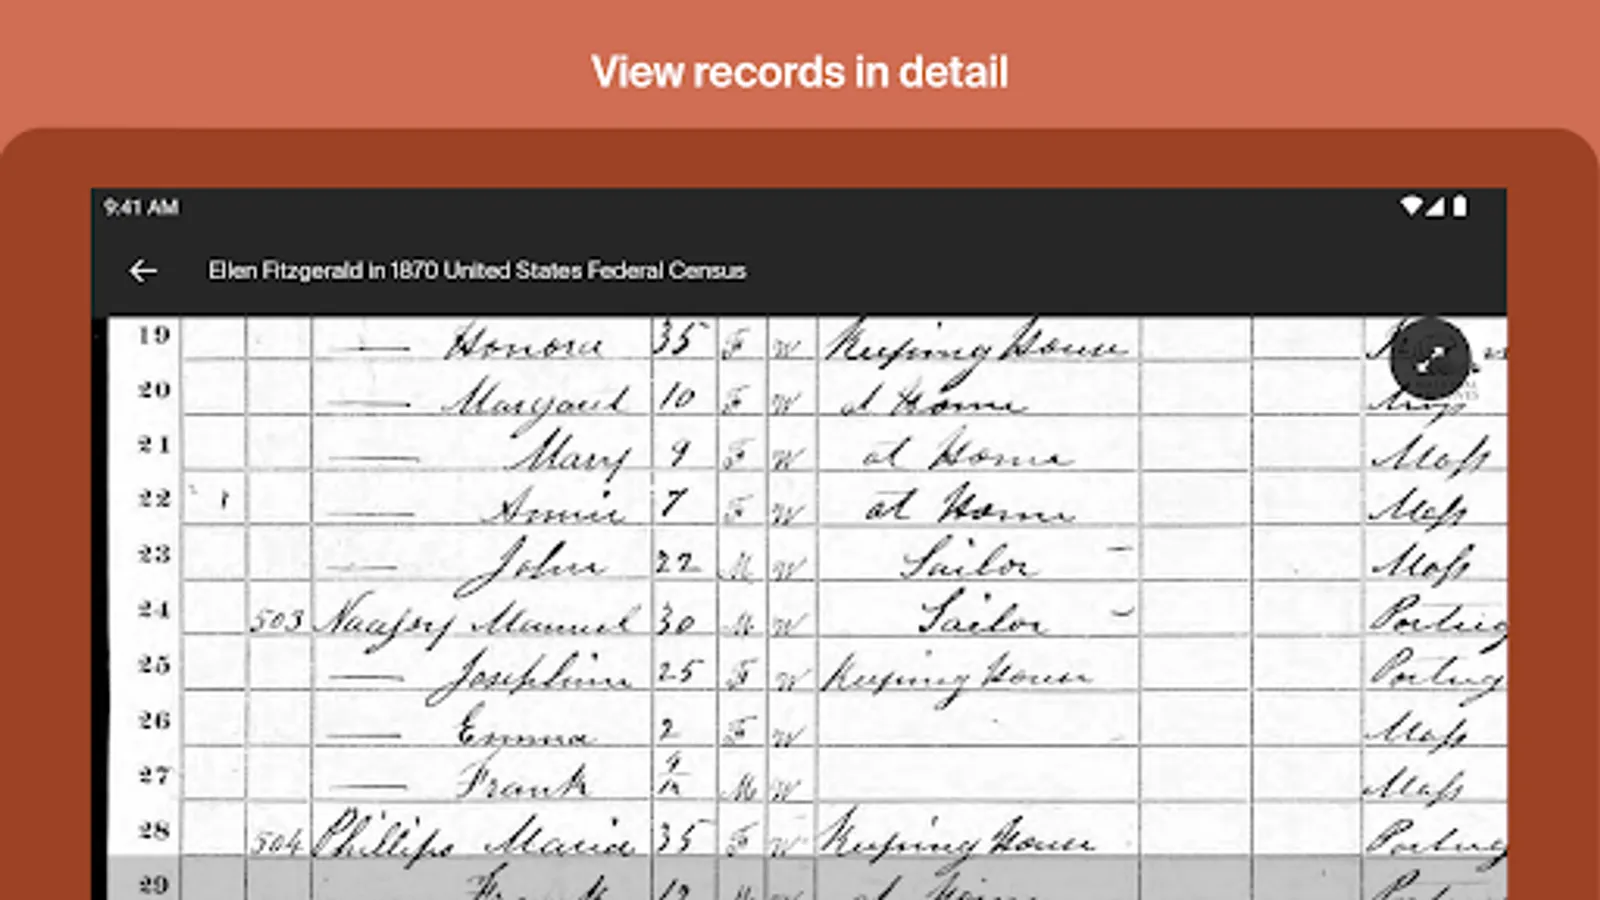 View records in detail
9:41 AM
Ellen Fitzgerald in 1870 United States Federal Census
19 — Honora 35 F W Keeping House
20 — Margaret 10 F W at Home
21 — Mary 9 F W at Home Mass
22 — Annie 7 F W at Home Mass
23 — John 22 M W Sailor Mass
24 503 Manuel 30 M W Sailor Portug
25 — Josephine 25 F W Keeping House Portug
26 — Emma 2 F W Mass
27 — Frank 9/12 M W Mass
28 504 Phillips Maria 35 F W Keeping House Portug
29 Frank 12 M at Home